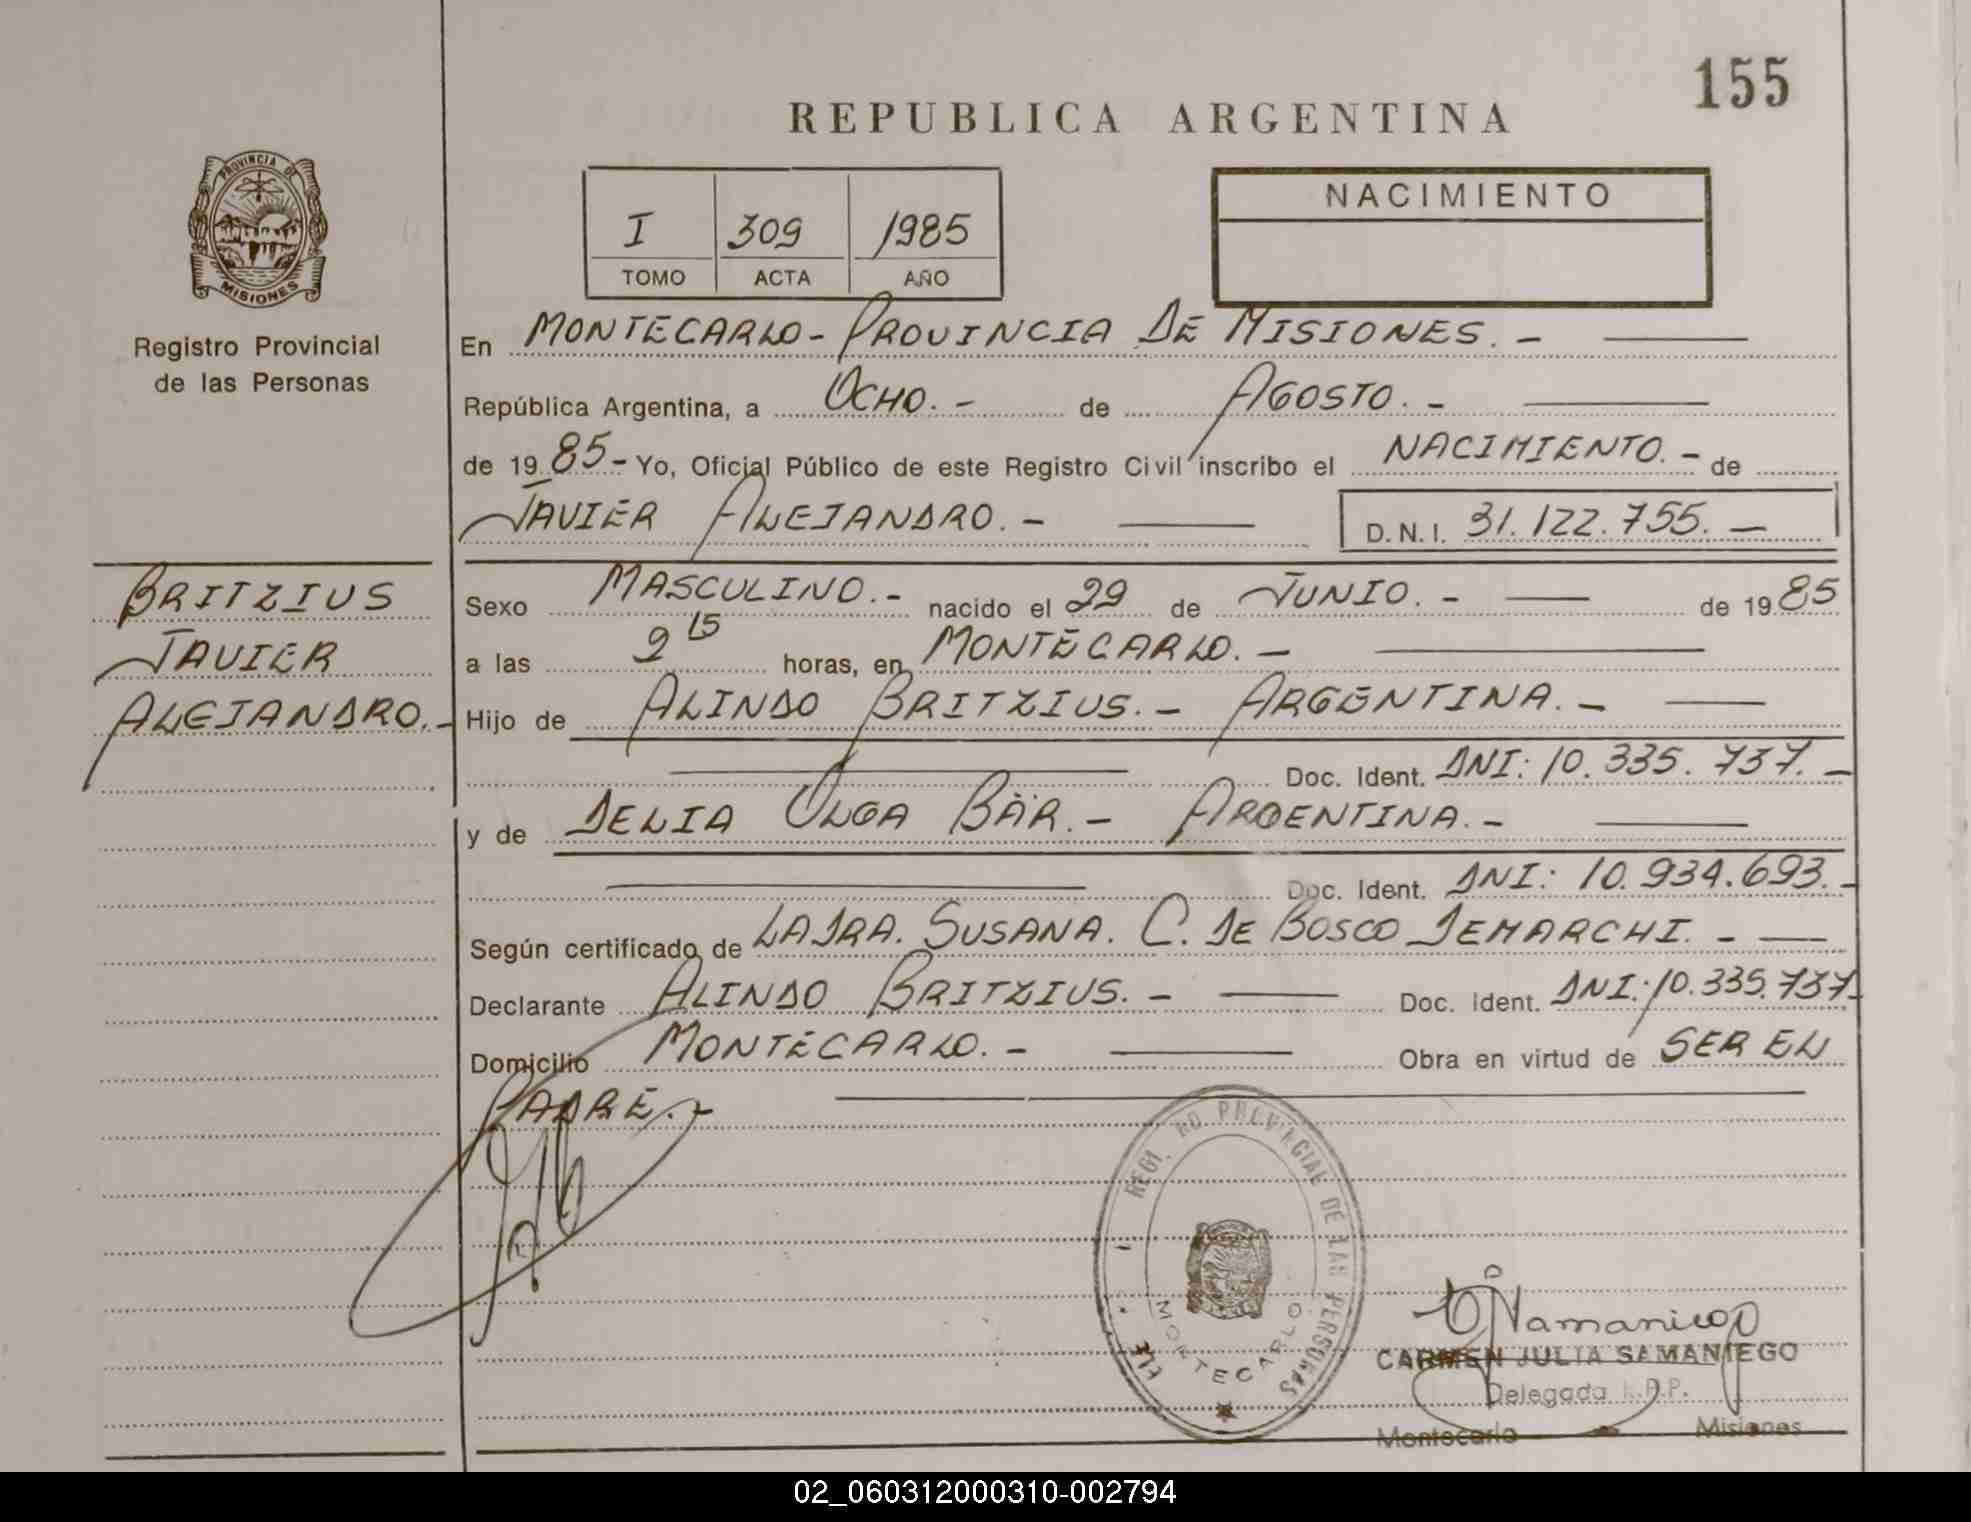 155
REPUBLICA ARGENTINA
PROVINCIA DE
MISIONES
Registro Provincial
de las Personas
I 309 1985
TOMO ACTA AÑO
NACIMIENTO
En MONTECARLO - PROVINCIA DE MISIONES. -
República Argentina, a OCHO. - de AGOSTO. -
de 1985 - Yo, Oficial Público de este Registro Civil inscribo el NACIMIENTO. - de
JAVIER ALEJANDRO. - D.N.I. 31.122.755. -
BRITZIUS
JAVIER
ALEJANDRO. -
Sexo MASCULINO. - nacido el 29 de JUNIO. - de 1985
a las 9 15 horas, en MONTECARLO. -
Hijo de ALINDO BRITZIUS. - ARGENTINA. -
Doc. Ident. DNI: 10.335.737. -
y de DELIA OLGA BÄR. - ARGENTINA. -
Doc. Ident. DNI: 10.934.693. -
Según certificado de LA DRA. SUSANA. C. DE BOSCO DEMARCHI. -
Declarante ALINDO BRITZIUS. - Doc. Ident. DNI: 10.335.737 -
Domicilio MONTECARLO. - Obra en virtud de SER EL
PADRE. -
PROVINCIAL DE LAS PERSONAS
MONTECARLO
CARMEN JULIA SAMANIEGO
Delegada R.P.P.
Montecarlo Misiones
02_060312000310-002794